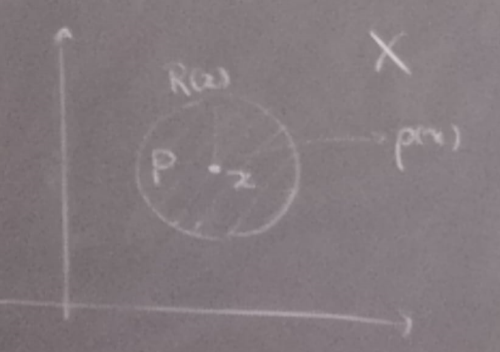 X
R(x)
P x
p(x)